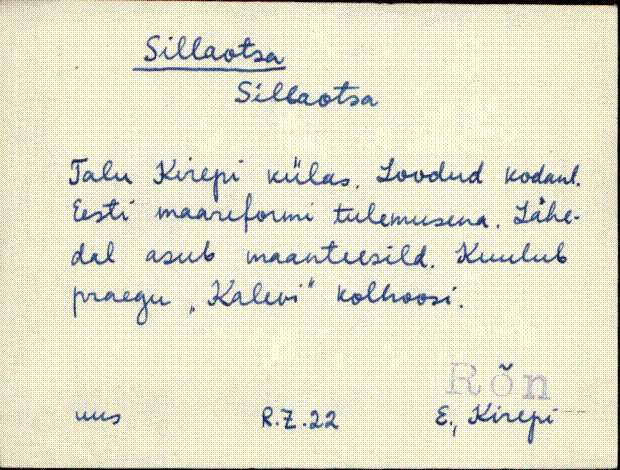 Sillaotsa
Sillaotsa
Talu Kirepi külas. Loodud kodanl.
Eesti maareformi tulemusena. Lähe-
dal asub maanteesild. Kuulub
praegu „Kalevi" kolhoosi.
Rõn
uus R.Z.22 E., Kirepi